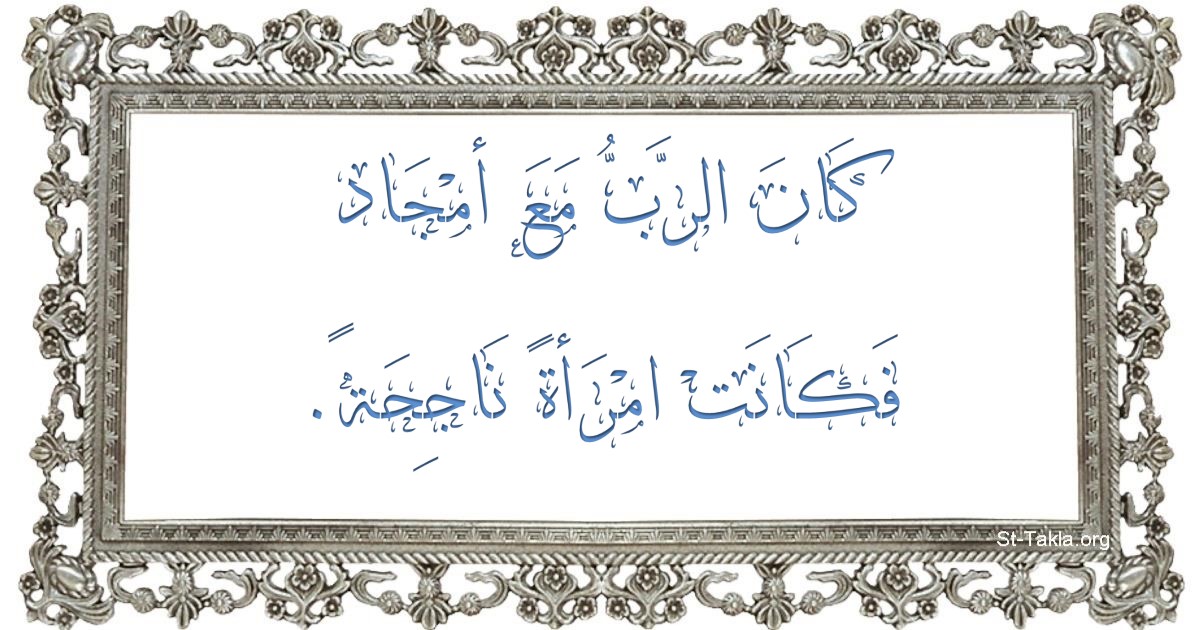 كَانَ الرَّبُّ مَعَ أمْجَاد
فَكَانَتْ امْرَأةً نَاجِحَةً.
St-Takla.org